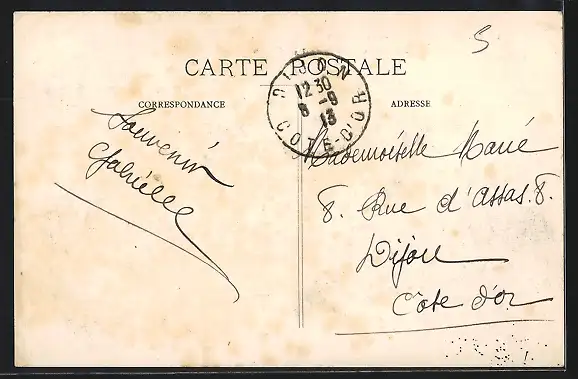 5
CARTE POSTALE
CORRESPONDANCE
ADRESSE
DIJON
12 30
8 - 9
13
COTE-D'OR
Souvenir
Gabrielle
Mademoiselle Marie
8. Rue d'Assas. 8.
Dijon
Côte d'or